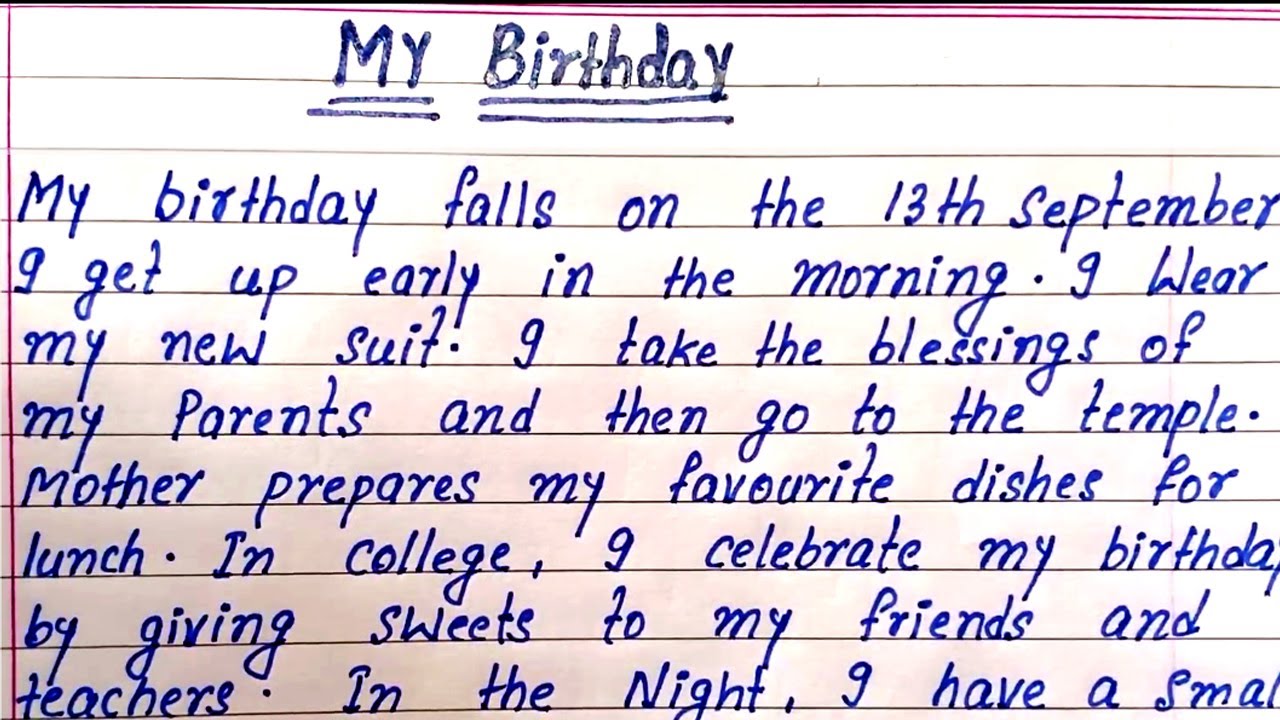 My Birthday
My birthday falls on the 13th September
I get up early in the morning. I Wear
my new suit. I take the blessings of
my Parents and then go to the temple.
Mother prepares my favourite dishes for
lunch. In college, I celebrate my birthday
by giving sweets to my friends and
teachers. In the Night, I have a smal